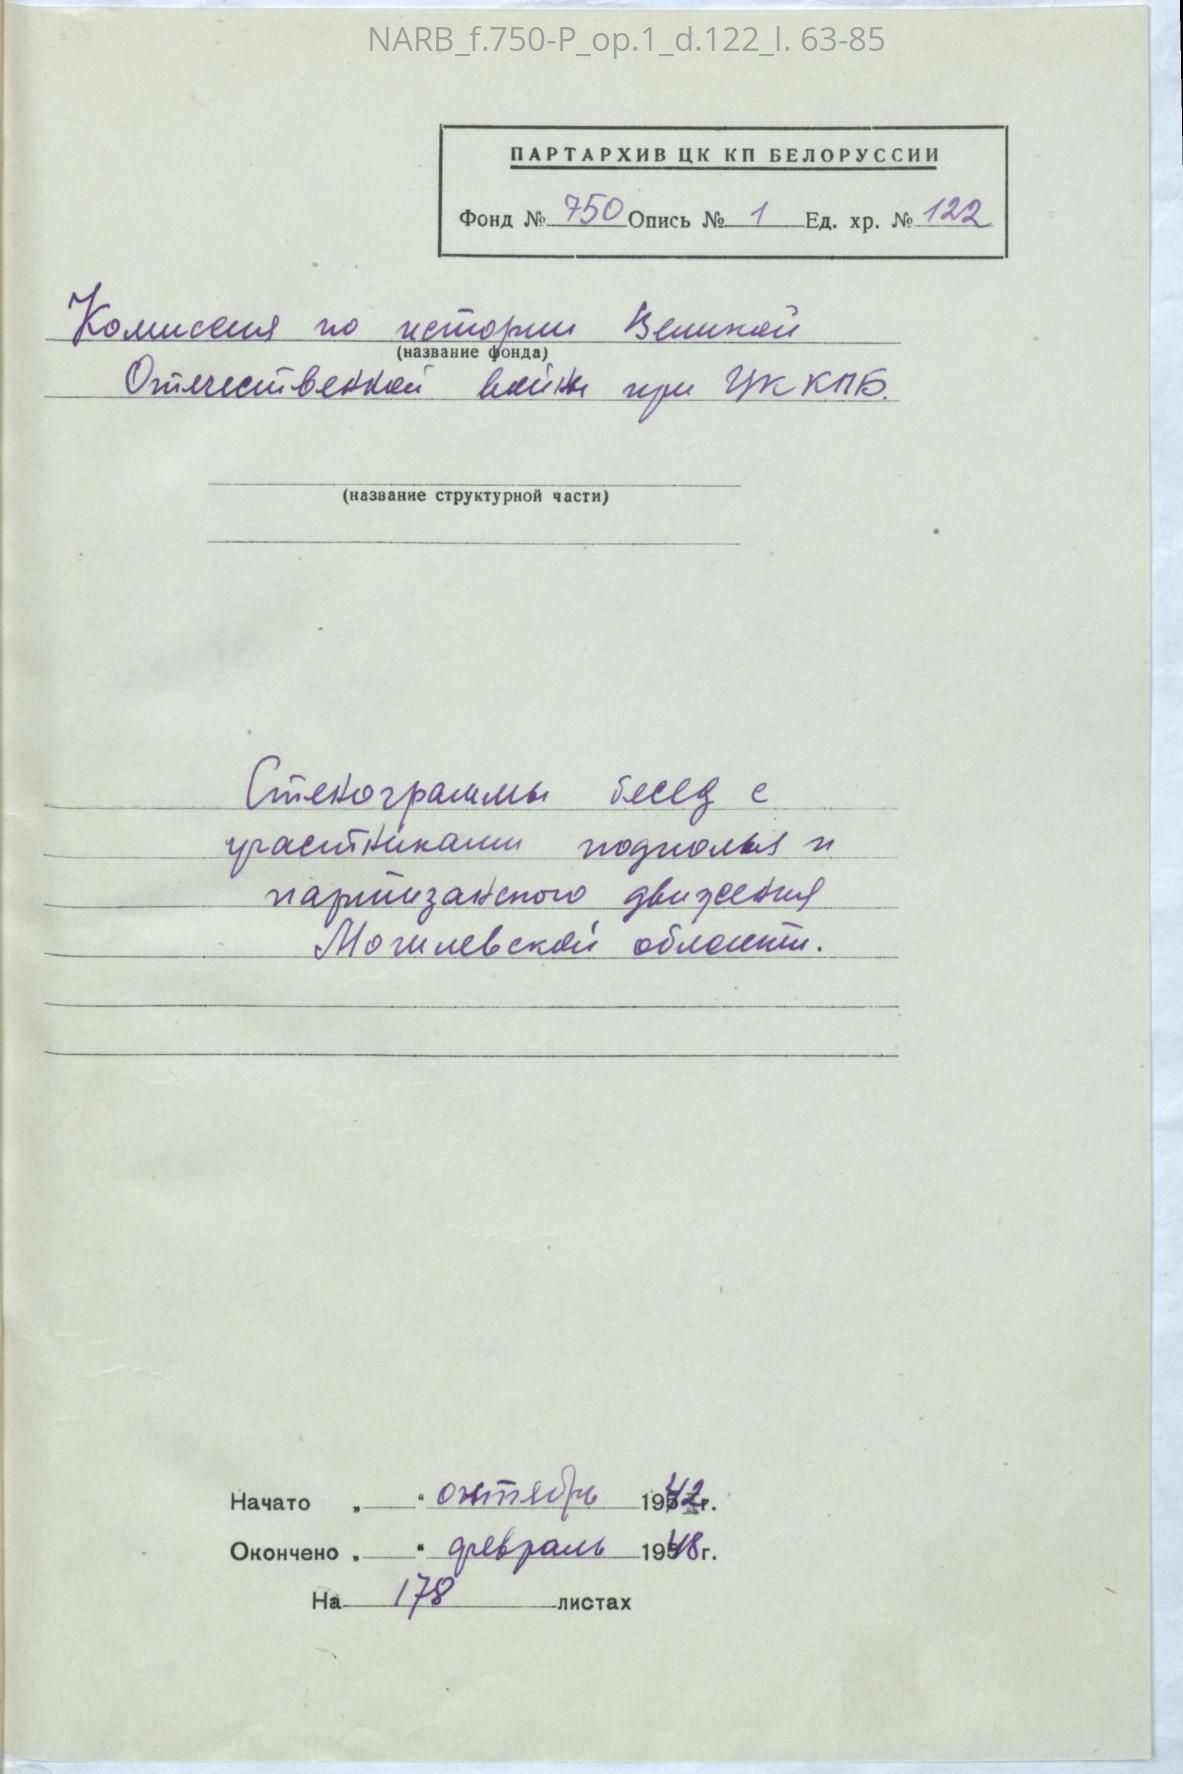 NARB_f.750-P_op.1_d.122_l. 63-85
ПАРТАРХИВ ЦК КП БЕЛОРУССИИ
Фонд № 750 Опись № 1 Ед. хр. № 122
Комиссия по истории Великой
(название фонда)
Отечественной войны при ЦК КПБ.
(название структурной части)
Стенограммы бесед с
участниками подполья и
партизанского движения
Могилевской области.
Начато „ “ октябрь 1942 г.
Окончено „ “ февраль 1948 г.
На 178 листах